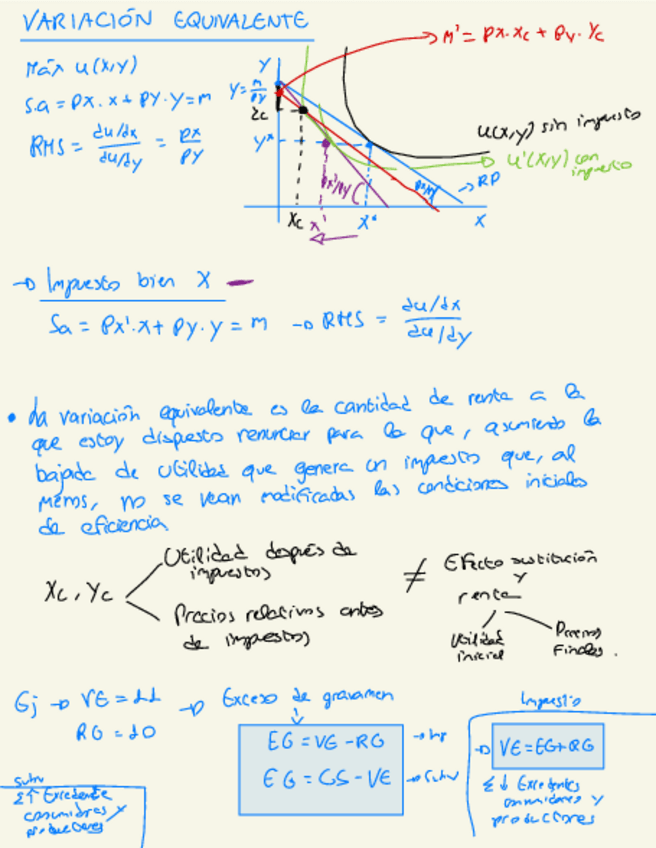 VARIACIÓN EQUIVALENTE
Máx u(x,y)
s.a = px·x + py·y = m
RMS = du/dx / du/dy = px / py
M' = px·xc + py·yc
y
y = m/py
yc
y*
xc
x*
x
px'/py
u(x,y) sin impuesto
u'(x,y) con impuesto
→ RP
→ Impuesto bien X
Sa = Px'·x + py·y = m → RMS = du/dx / du/dy
• La variación equivalente es la cantidad de renta a la
que estoy dispuesto renunciar para la que, asumiendo la
bajada de utilidad que genera un impuesto que, al
menos, no se vean modificadas las condiciones iniciales
de eficiencia
Xc, Yc
Utilidad después de
impuestos
Precios relativos antes
de impuestos
≠
Efecto sustitución
y
renta
Utilidad
inicial
Precios
Finales.
Ej → VE = 11 → Exceso de gravamen
RG = 10
EG = VE - RG → Imp
EG = CS - VE → Subv
Impuesto
→ VE = EG + RG
Σ ↓ Excedentes
consumidores y
productores
Subv
Σ ↑ Excedente
consumidores y
productores